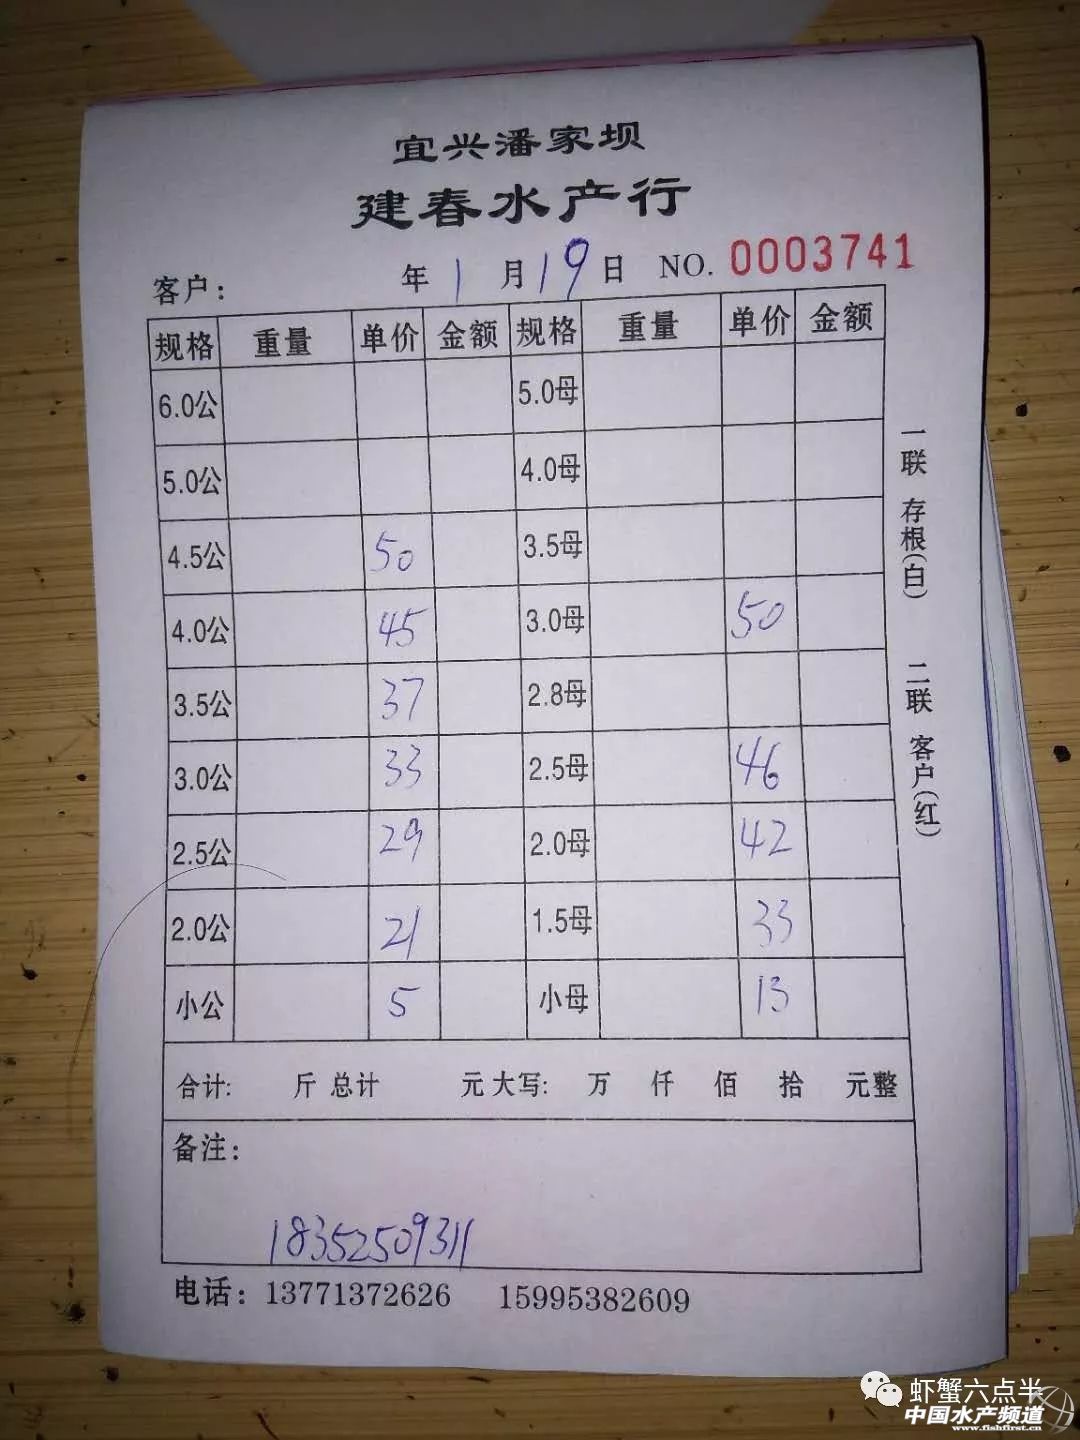 宜兴潘家坝
建春水产行
客户： 年 1 月 19 日 NO. 0003741
规格 重量 单价 金额 规格 重量 单价 金额
6.0公 5.0母
5.0公 4.0母
4.5公 50 3.5母
4.0公 45 3.0母 50
3.5公 37 2.8母
3.0公 33 2.5母 46
2.5公 29 2.0母 42
2.0公 21 1.5母 33
小公 5 小母 13
合计: 斤 总计 元 大写: 万 仟 佰 拾 元整
备注：
18352509311
电话：13771372626 15995382609
一联 存根(白) 二联 客户(红)
虾蟹六点半
中国水产频道
www.fishfirst.cn